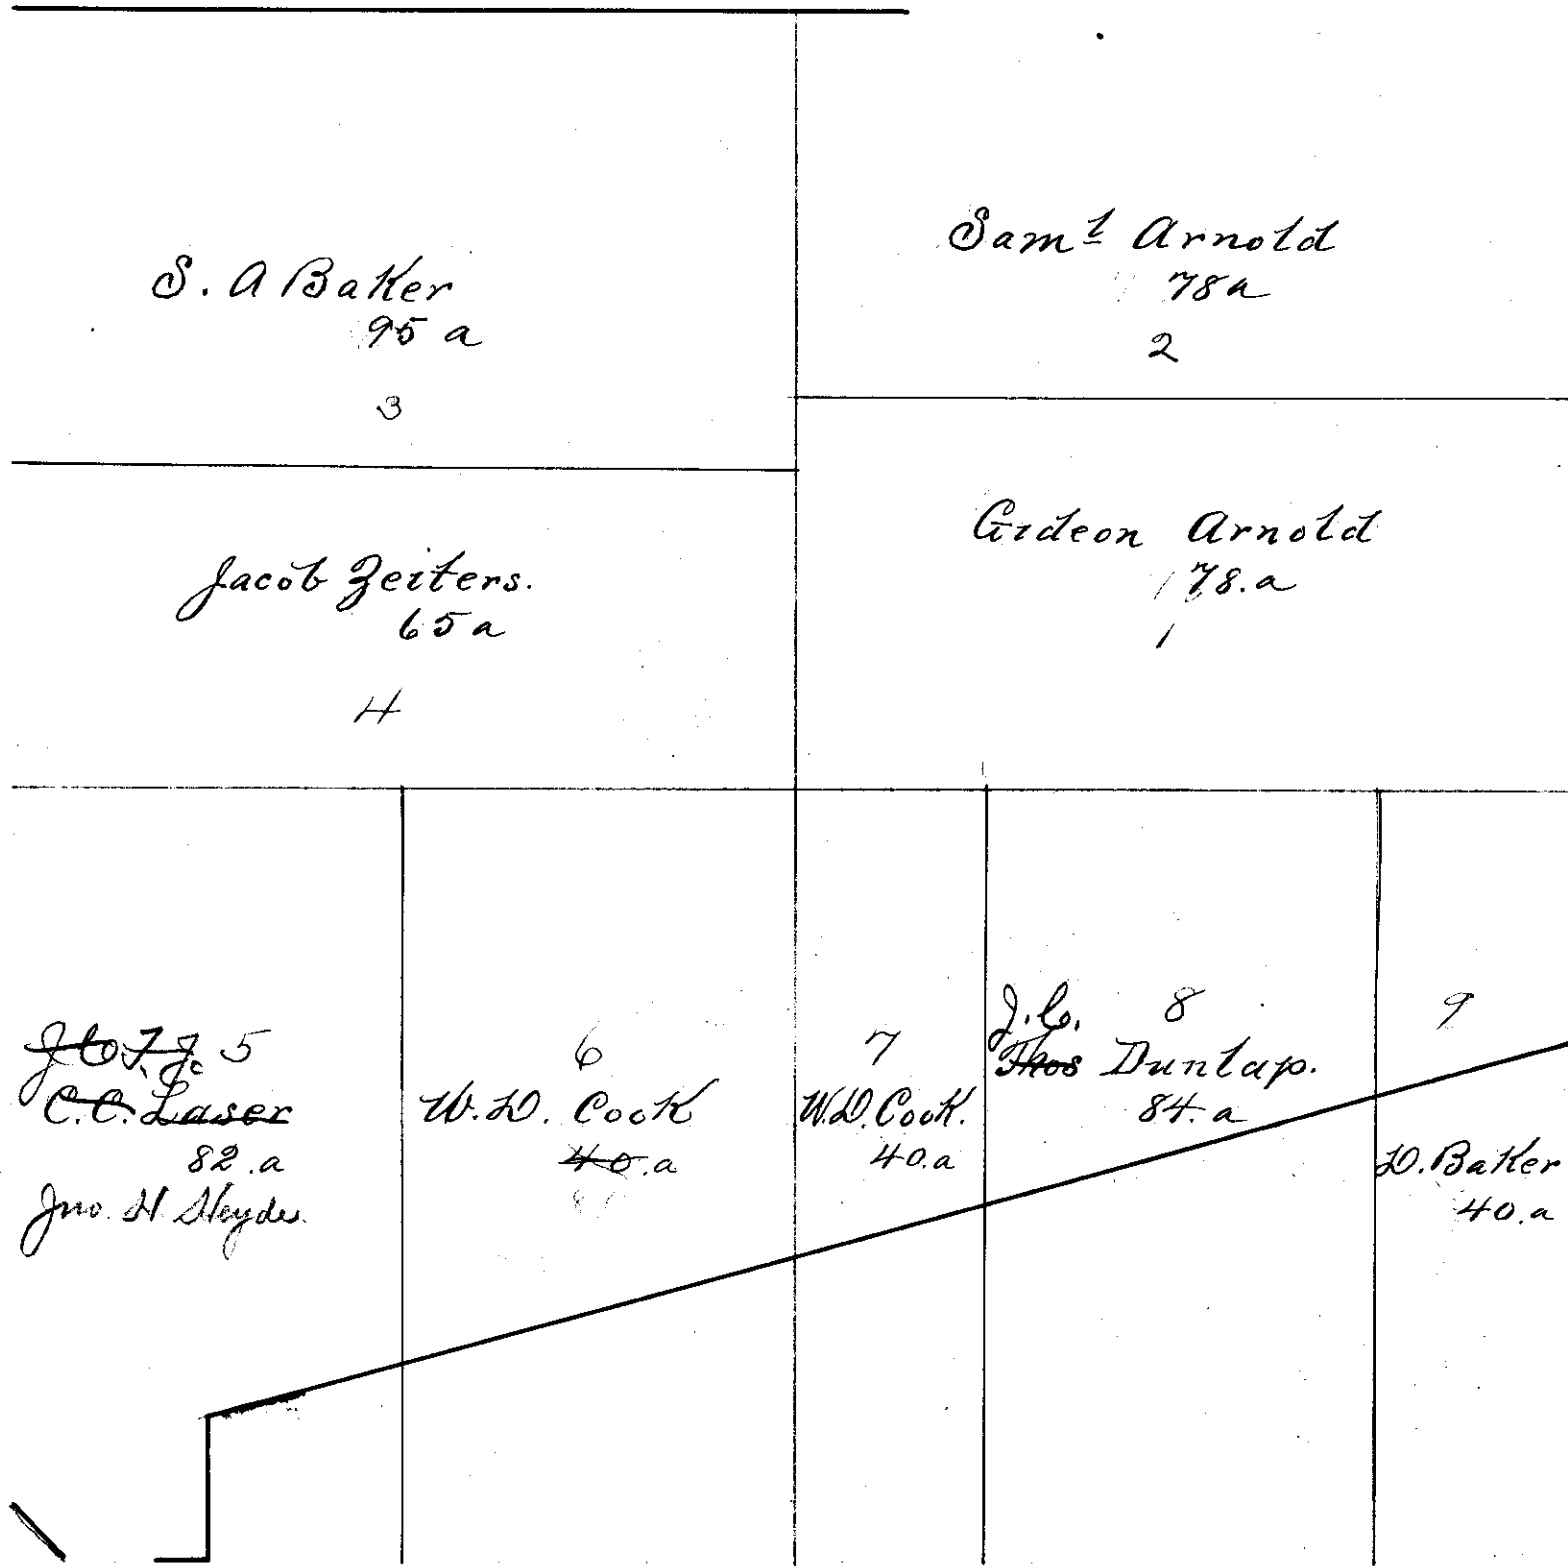 S. A Baker
95 a
3
Saml Arnold
78a
2
Jacob Zeiters.
65 a
4
Gideon Arnold
78.a
1
5
C.C. Laser
82.a
Jno. H
6
W.D. Cook
40.a
7
W.D. Cook.
40.a
J.C. 8
Thos Dunlap.
84.a
9
D. Baker
40.a